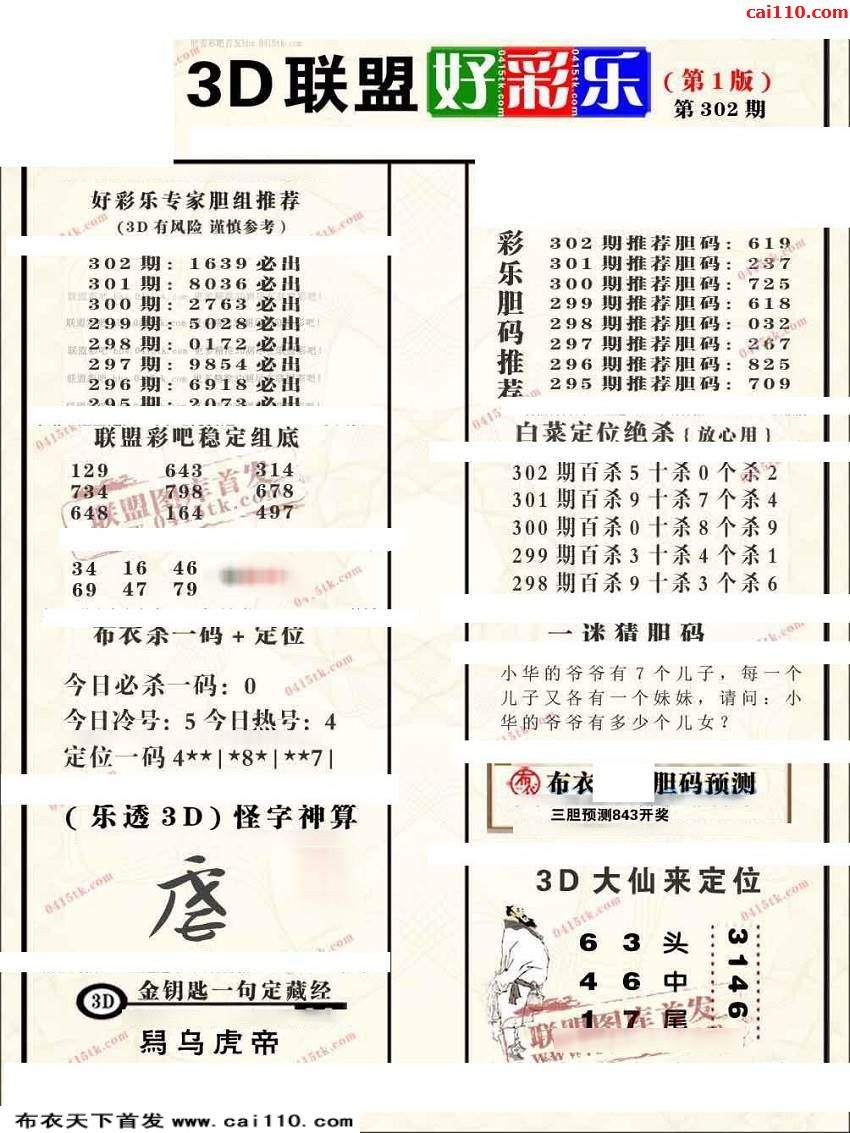 cai110.com
3D联盟好彩乐
(第1版)
第302期
好彩乐专家胆组推荐
(3D有风险 谨慎参考)
302期: 1639必出
301期: 8036必出
300期: 2763必出
299期: 5028必出
298期: 0172必出
297期: 9854必出
296期: 6918必出
295期: 2073必出
联盟彩吧稳定组底
129 643 314
734 798 678
648 164 497
34 16 46
69 47 79
布衣杀一码+定位
今日必杀一码: 0
今日冷号: 5 今日热号: 4
定位一码4**|*8*|**7|
(乐透3D)怪字神算
3D 金钥匙一句定藏经
舄乌虎帝
彩乐胆码推荐
302期推荐胆码: 619
301期推荐胆码: 237
300期推荐胆码: 725
299期推荐胆码: 618
298期推荐胆码: 032
297期推荐胆码: 267
296期推荐胆码: 825
295期推荐胆码: 709
白菜定位绝杀{放心用}
302期百杀5十杀0个杀2
301期百杀9十杀7个杀4
300期百杀0十杀8个杀9
299期百杀3十杀4个杀1
298期百杀9十杀3个杀6
一迷猜胆码
小华的爷爷有7个儿子，每一个
儿子又各有一个妹妹，请问：小
华的爷爷有多少个儿女？
布衣 胆码预测
三胆预测843开奖
3D大仙来定位
6 3 头
4 6 中
1 7 尾
3146
联盟图库首发
0415tk.com
布衣天下首发 www.cai110.com